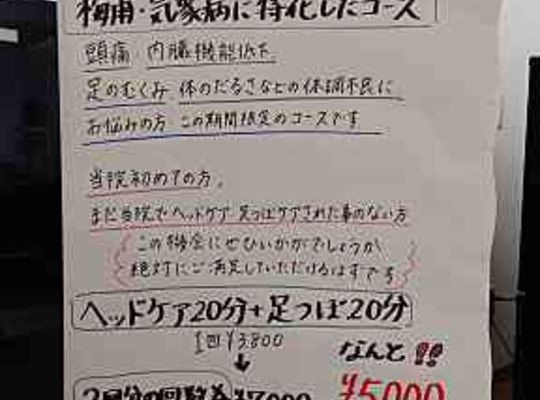 梅雨・気象病に特化したコース
頭痛 内臓機能低下
足のむくみ 体のだるさなどの体調不良に
お悩みの方 この期間限定のコースです
当院初めての方、
まだ当院でヘッドケア 足つぼケアされた事のない方
この機会にぜひいかがでしょうか
絶対にご満足していただけるはずです
ヘッドケア20分+足つぼ20分
1回 ¥3,800
↓
なんと!!
2回分の回数券 ¥7000
¥5000